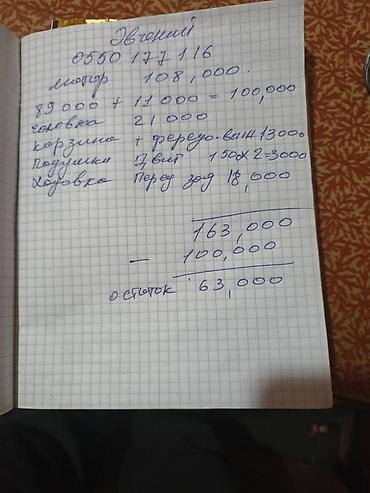 Эвгений
0550 177 116
мотор 108,000.
89000 + 11000 = 100,000
головка 21 000
корзина + фередо. выж 13000
подушки 7 шт 1500x2=3000
Ходовка перед зад 18,000
163,000
— 100,000
остаток 63,000